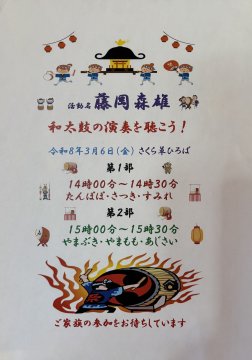 活動名 藤岡森雄
和太鼓の演奏を聴こう！
令和8年3月6日(金) さくら草ひろば
第1部
14時00分～14時30分
たんぽぽ・さつき・すみれ
第2部
15時00分～15時30分
やまぶき・やまもも・あじさい
ご家族の参加をお待ちしています